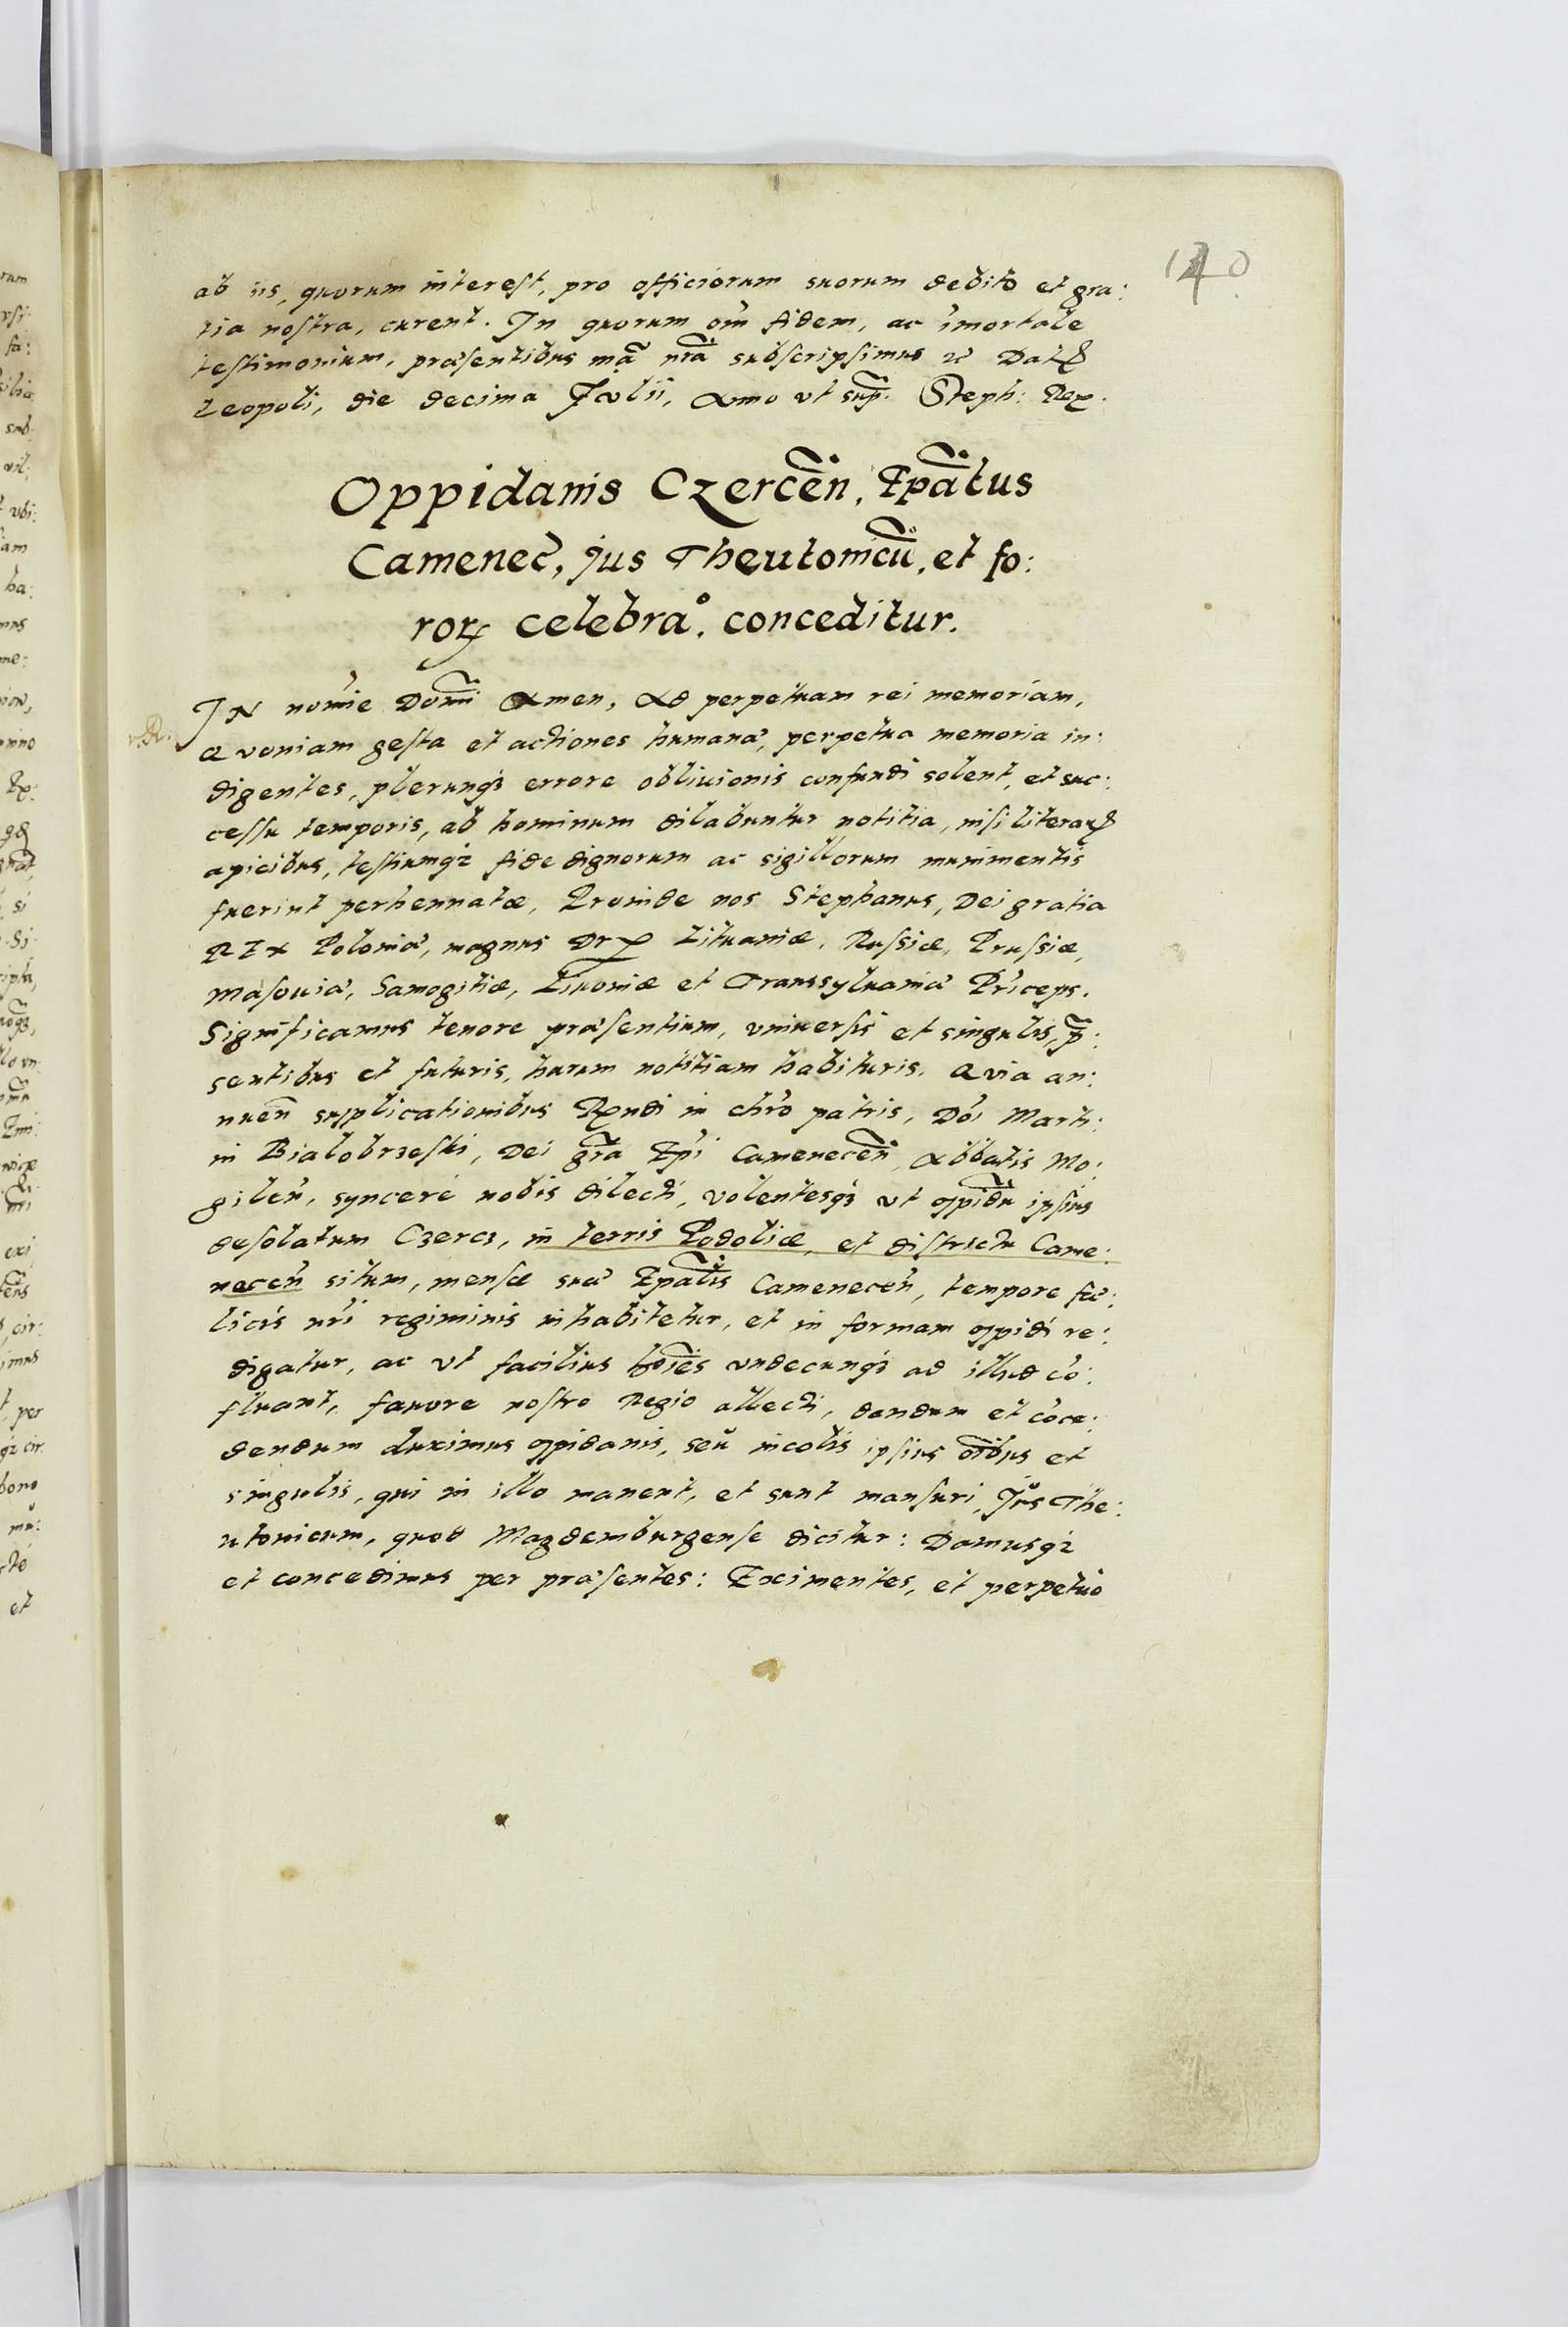 140
ab iis, quorum interest, pro officiorum suorum debito et gra:
tia nostra, curent. In quorum om̃ fidem, ac im̃ortale
testimonium, præsentibus mã nr̃a subscripsimus
Leopoli, die decima Iulii, Anno vt sup̃. Steph: Rex.
Oppidanis Czercen̄, Ep̃atus
Camenec̃, jus Theutonicũ, et fo:
roꝝ celebra°. conceditur.
IN nomĩe Domĩ Amen, Ad perpetuam rei memoriam,
Qvoniam gesta et actiones humanæ, perpetua memoria in:
digentes, plerunqꝫ errore obliuionis confundi solent, et suc:
cessu temporis, ab hominum dilabuntur notitia, nisi literaꝝ
apicibus, testiumqꝫ fide dignorum ac sigillorum munimentis
fuerint perhennatæ, Proinde nos Stephanus, Dei gratia
REX Poloniæ, magnus Dux Lituaniæ, Russiæ, Prussiæ,
Masouiæ, Samogitiæ, Liuoniæ et Transsyluaniæ Pri̇ceps.
Significamus tenore præsentium, vniuersis et singulis, p̃:
sentibus et futuris, harum notitiam habituris. Qvia an:
nuen̄ supplicationibus Rx̃ndi in chr̃o patris, Dñi Marti:
ni Bialobrzeski, Dei gr̃a Ep̃i Camenecen̄, Abbatis Mo:
gilen̄, syncere nobis dilecti, volentesqꝫ vt oppidũ ipsius
desolatum Czercz, in terris Podoliæ, et districtu Came:
necen̄ situm, mensæ suæ Ep̃alis Camenecen̄, tempore fœ:
licis nr̃i regiminis inhabitetur, et in formam oppidi re:
digatur, ac vt facilius hoĩes vndecunqꝫ ad illud cõ:
fluant, fauore nostro Regio allecti, dandum et cõce:
dendum duximus oppidanis, seu incolis ipsius oĩbus et
singulis, qui in illo manent, et sunt mansuri, Jus The:
utonicum, quod Magdemburgense dicitur: Damusqꝫ
et concedimus per præsentes: Eximentes, et perpetuo